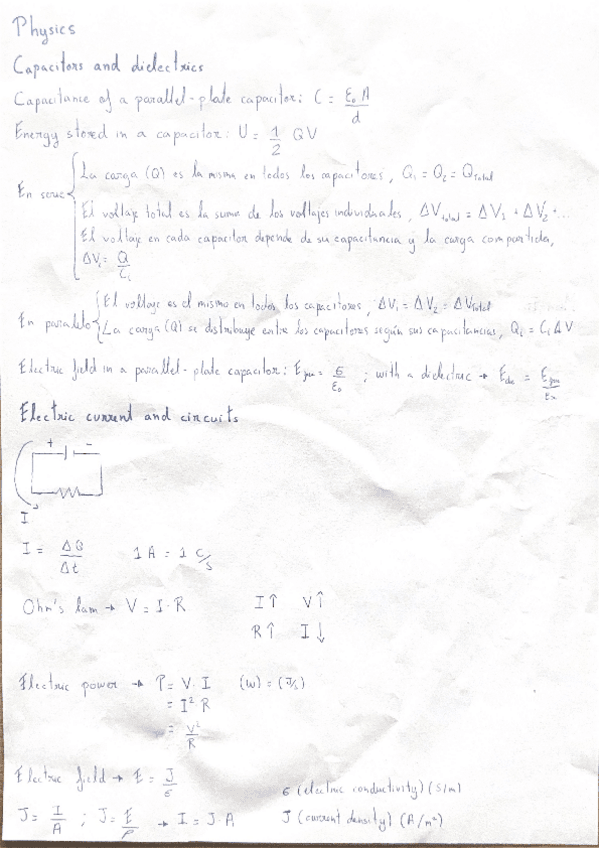 Physics
Capacitors and dielectrics
Capacitance of a parallel-plate capacitor: C = ε₀ A / d
Energy stored in a capacitor: U = 1/2 QV
En serie { La carga (Q) es la misma en todos los capacitores, Q₁ = Q₂ = Q_total
El voltaje total es la suma de los voltajes individuales, ΔV_total = ΔV₁ + ΔV₂ + ...
El voltaje en cada capacitor depende de su capacitancia y la carga compartida,
ΔVᵢ = Q / Cᵢ
En paralelo { El voltaje es el mismo en todos los capacitores, ΔV₁ = ΔV₂ = ΔV_total
La carga (Q) se distribuye entre los capacitores según sus capacitancias, Qᵢ = Cᵢ ΔV
Electric field in a parallel-plate capacitor: E = σ / ε₀ ; with a dielectric → E = E / εᵣ
Electric current and circuits
+ -
I
I = ΔQ / Δt 1 A = 1 C/s
Ohm's law → V = I · R I ↑ V ↑
R ↑ I ↓
Electric power → P = V · I (W) = (J/s)
= I² R
= V² / R
Electric field → E = J / σ
σ (electric conductivity) (S/m)
J = I / A ; J = E / ρ → I = J · A J (current density) (A/m²)